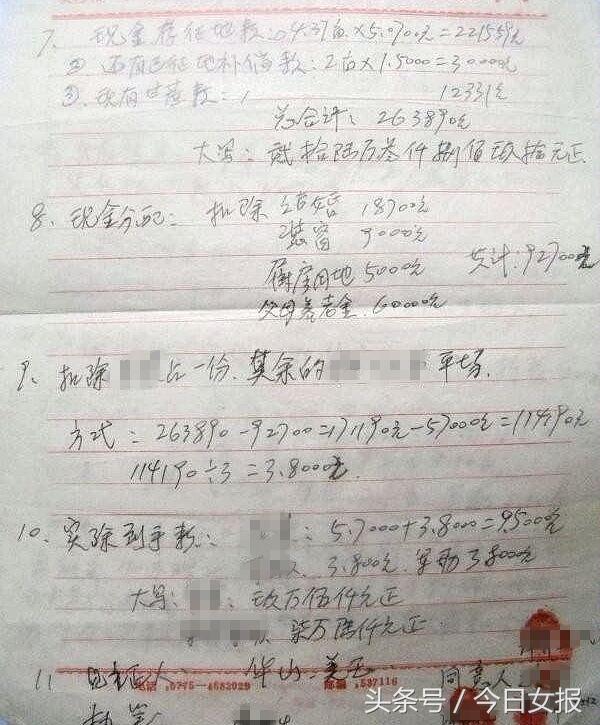 7、现金存征地款:04.37亩×5.0700元=221559元
② 还有已征地补偿款:2亩×1.5000=30000元
③ 现有甘蔗款: 12331元
总合计:263890元
大写:贰拾陆万叁仟捌佰玖拾元正
8、现金分配:扣除结婚 18700元
装窗 9000元
屋宅用地 5000元 共计:92700元
父母养老金 60000元
9、扣除 占一份.其余的 平均.
方式:263890-92700=171190元-57000元=114190元
114190÷3=3.8000元
10、实际到手款: :5.7000+3.8000=95000元
3.8000元 3.8000元
大写: :玖万伍仟元正
柒万陆仟元正
11 见证人: 同意人:
电话:0775-4682029 邮编:537116
头条号/今日女报